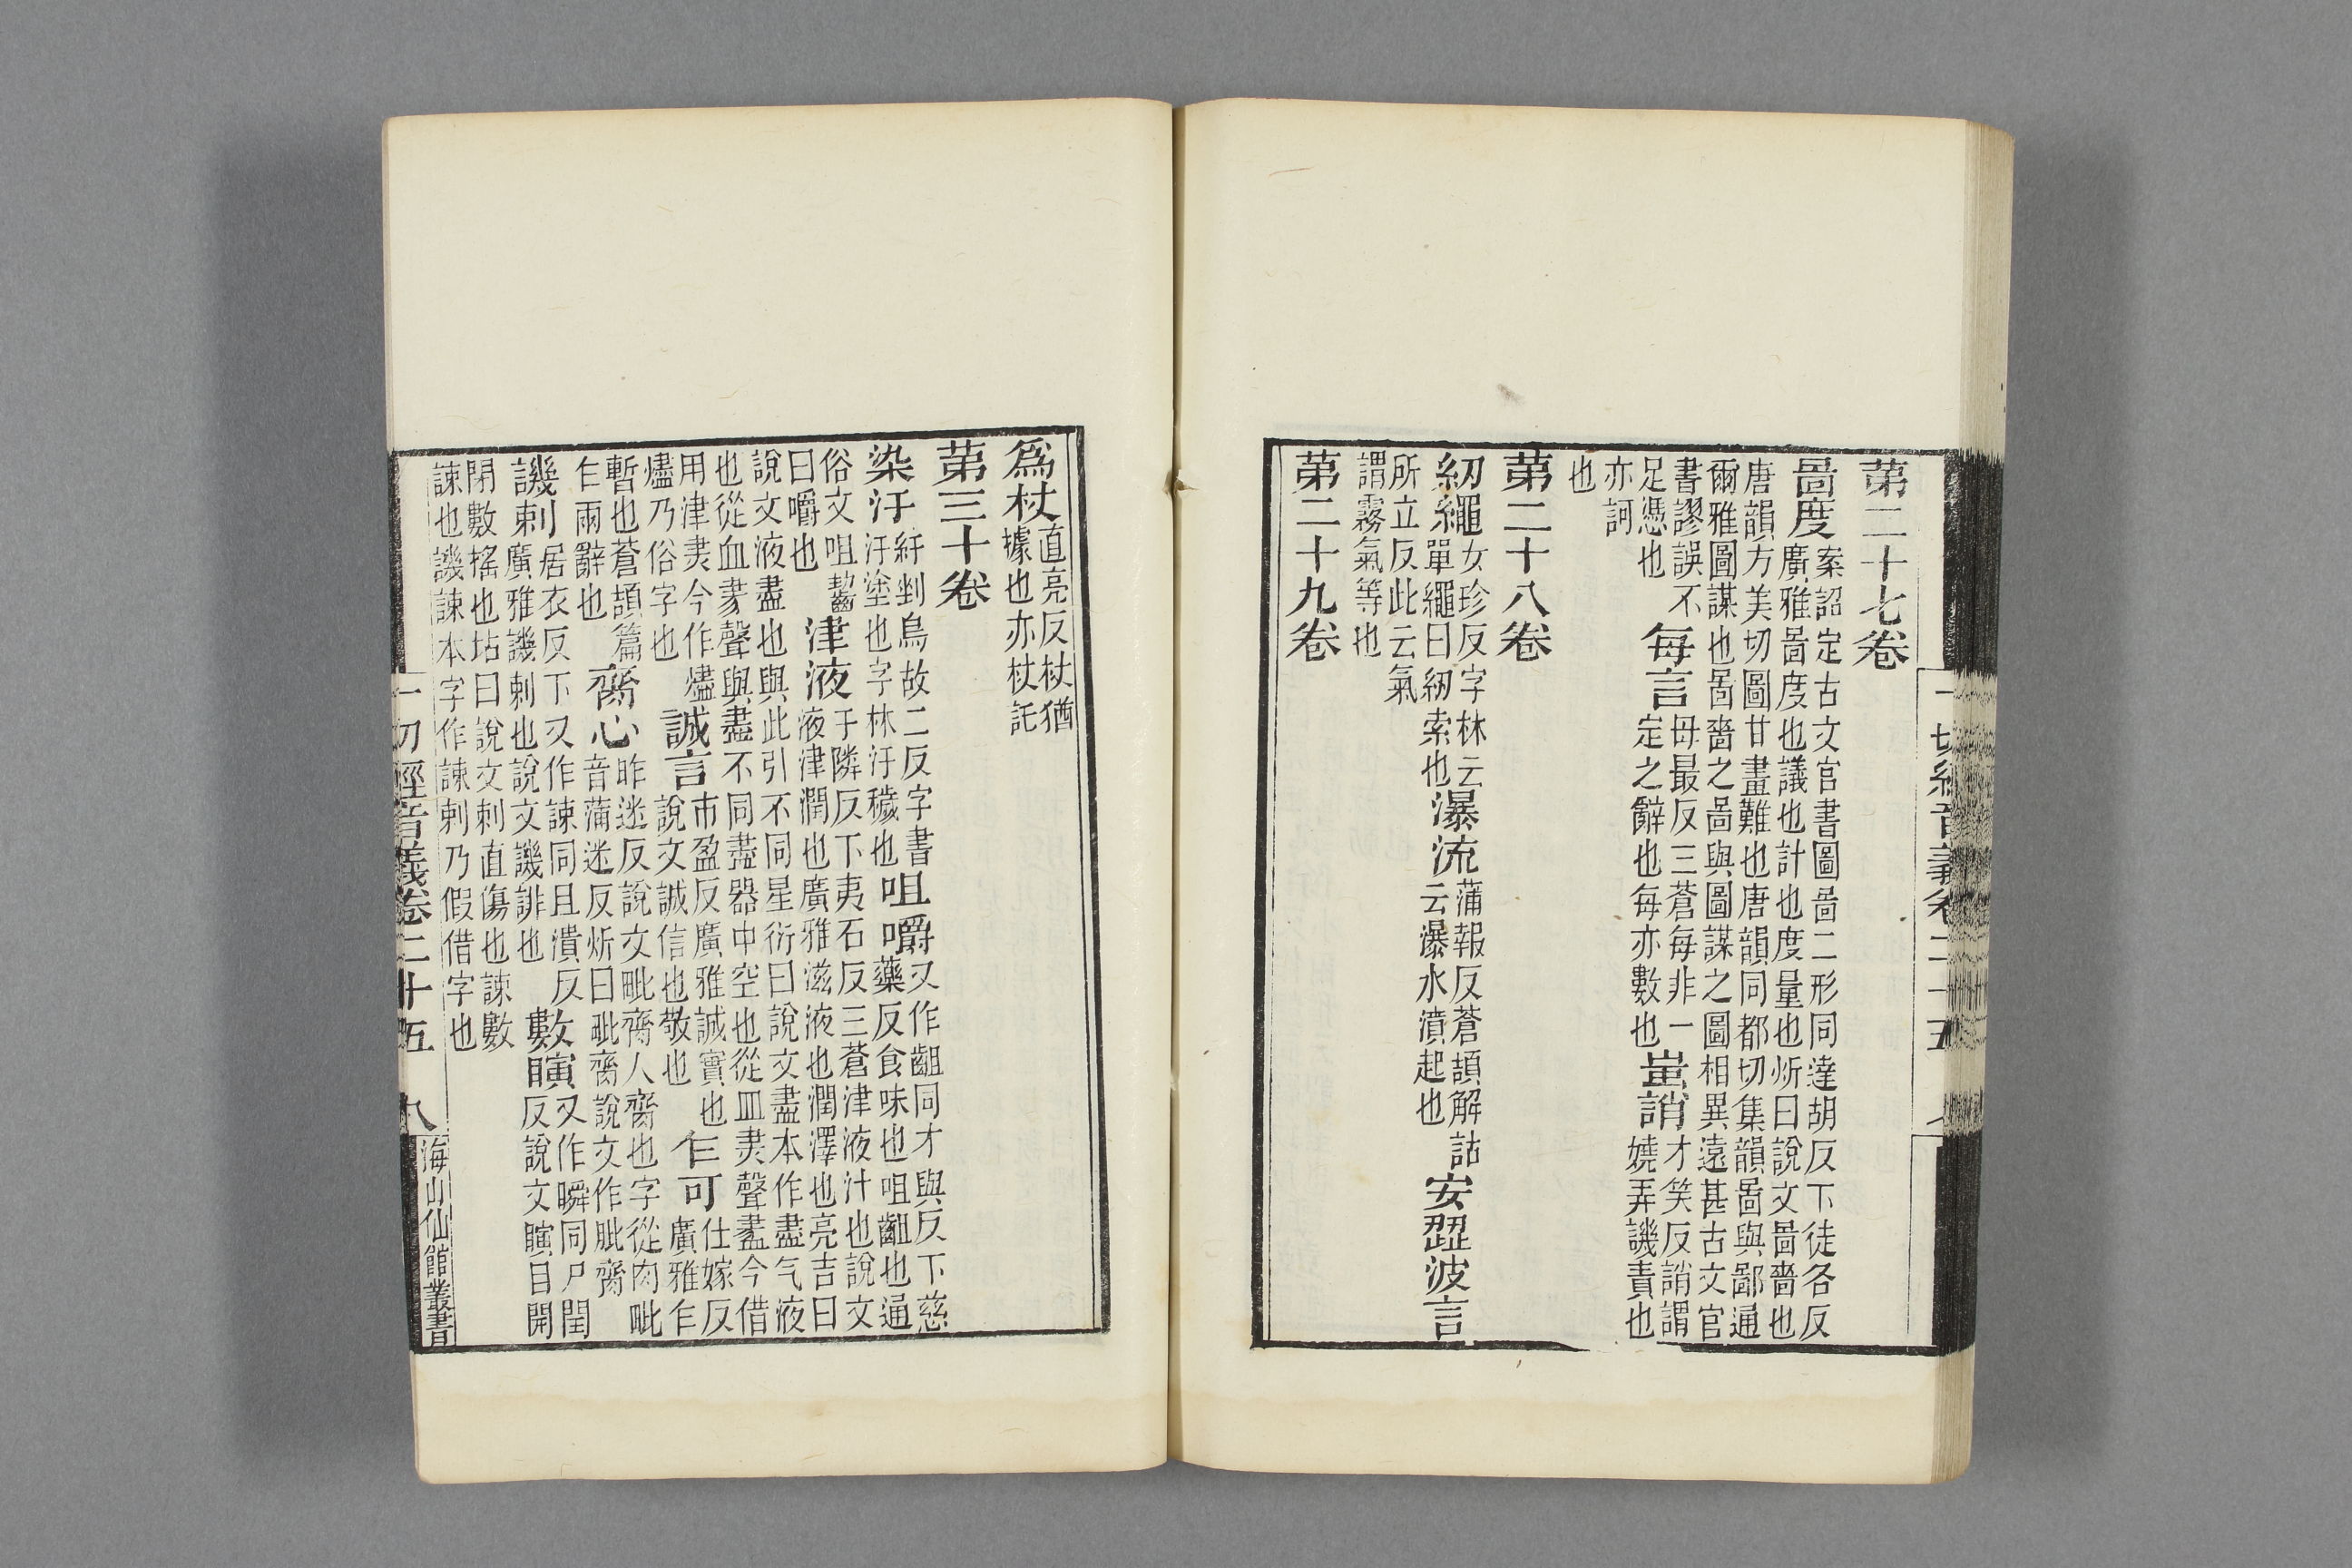 一切經音義卷二十五
第二十七卷
啚度案詔定古文官書圖啚二形同達胡反下徒各反
廣雅啚度也議也計也度量也炘曰說文啚嗇也
唐韻方美切圖甘畫難也唐韻同都切集韻啚與鄙通
爾雅圖謀也啚嗇之啚與圖謀之圖相異遠甚古文官
書謬誤不
足憑也每言母最反三蒼每非一
定之辭也每亦數也蚩誚才笑反誚謂
嬈弄譏責也
亦訶
也
第二十八卷
紉繩女珍反字林云
單繩曰紉索也瀑流蒲報反蒼頡解詁
云瀑水濆起也安歰波言
所立反此云氣
謂霧氣等也
第二十九卷
爲杖直亮反杖猶
據也亦杖託
第三十卷
染汙紆剉烏故二反字書
汙塗也字林汙穢也咀嚼又作齟同才與反下慈
藥反食味也咀齟也通
俗文咀齧
曰嚼也津液子隣反下夷石反三蒼津液汁也說文
液津潤也廣雅滋液也潤澤也亮吉曰
說文液盡也與此引不同星衍曰說文盡本作盡气液
也從血聲與盡不同盡器中空也從皿聲今借
用津今作燼
燼乃俗字也誠言市盈反廣雅誠實也
說文誠信也敬也乍可仕嫁反
廣雅乍
暫也蒼頡篇
乍兩辭也齎心昨迷反說文毗齎人齎也字從肉毗
音蒲迷反炘曰毗齎說文作肶齎
譏刺居衣反下又作諫同且漬反
廣雅譏刺也說文譏誹也數瞚又作瞬同尸閏
反說文瞚目開
閉數搖也坫曰說文刺直傷也諫數
諫也譏諫本字作諫刺乃假借字也
一切經音義卷二十五 八 海山仙館叢書